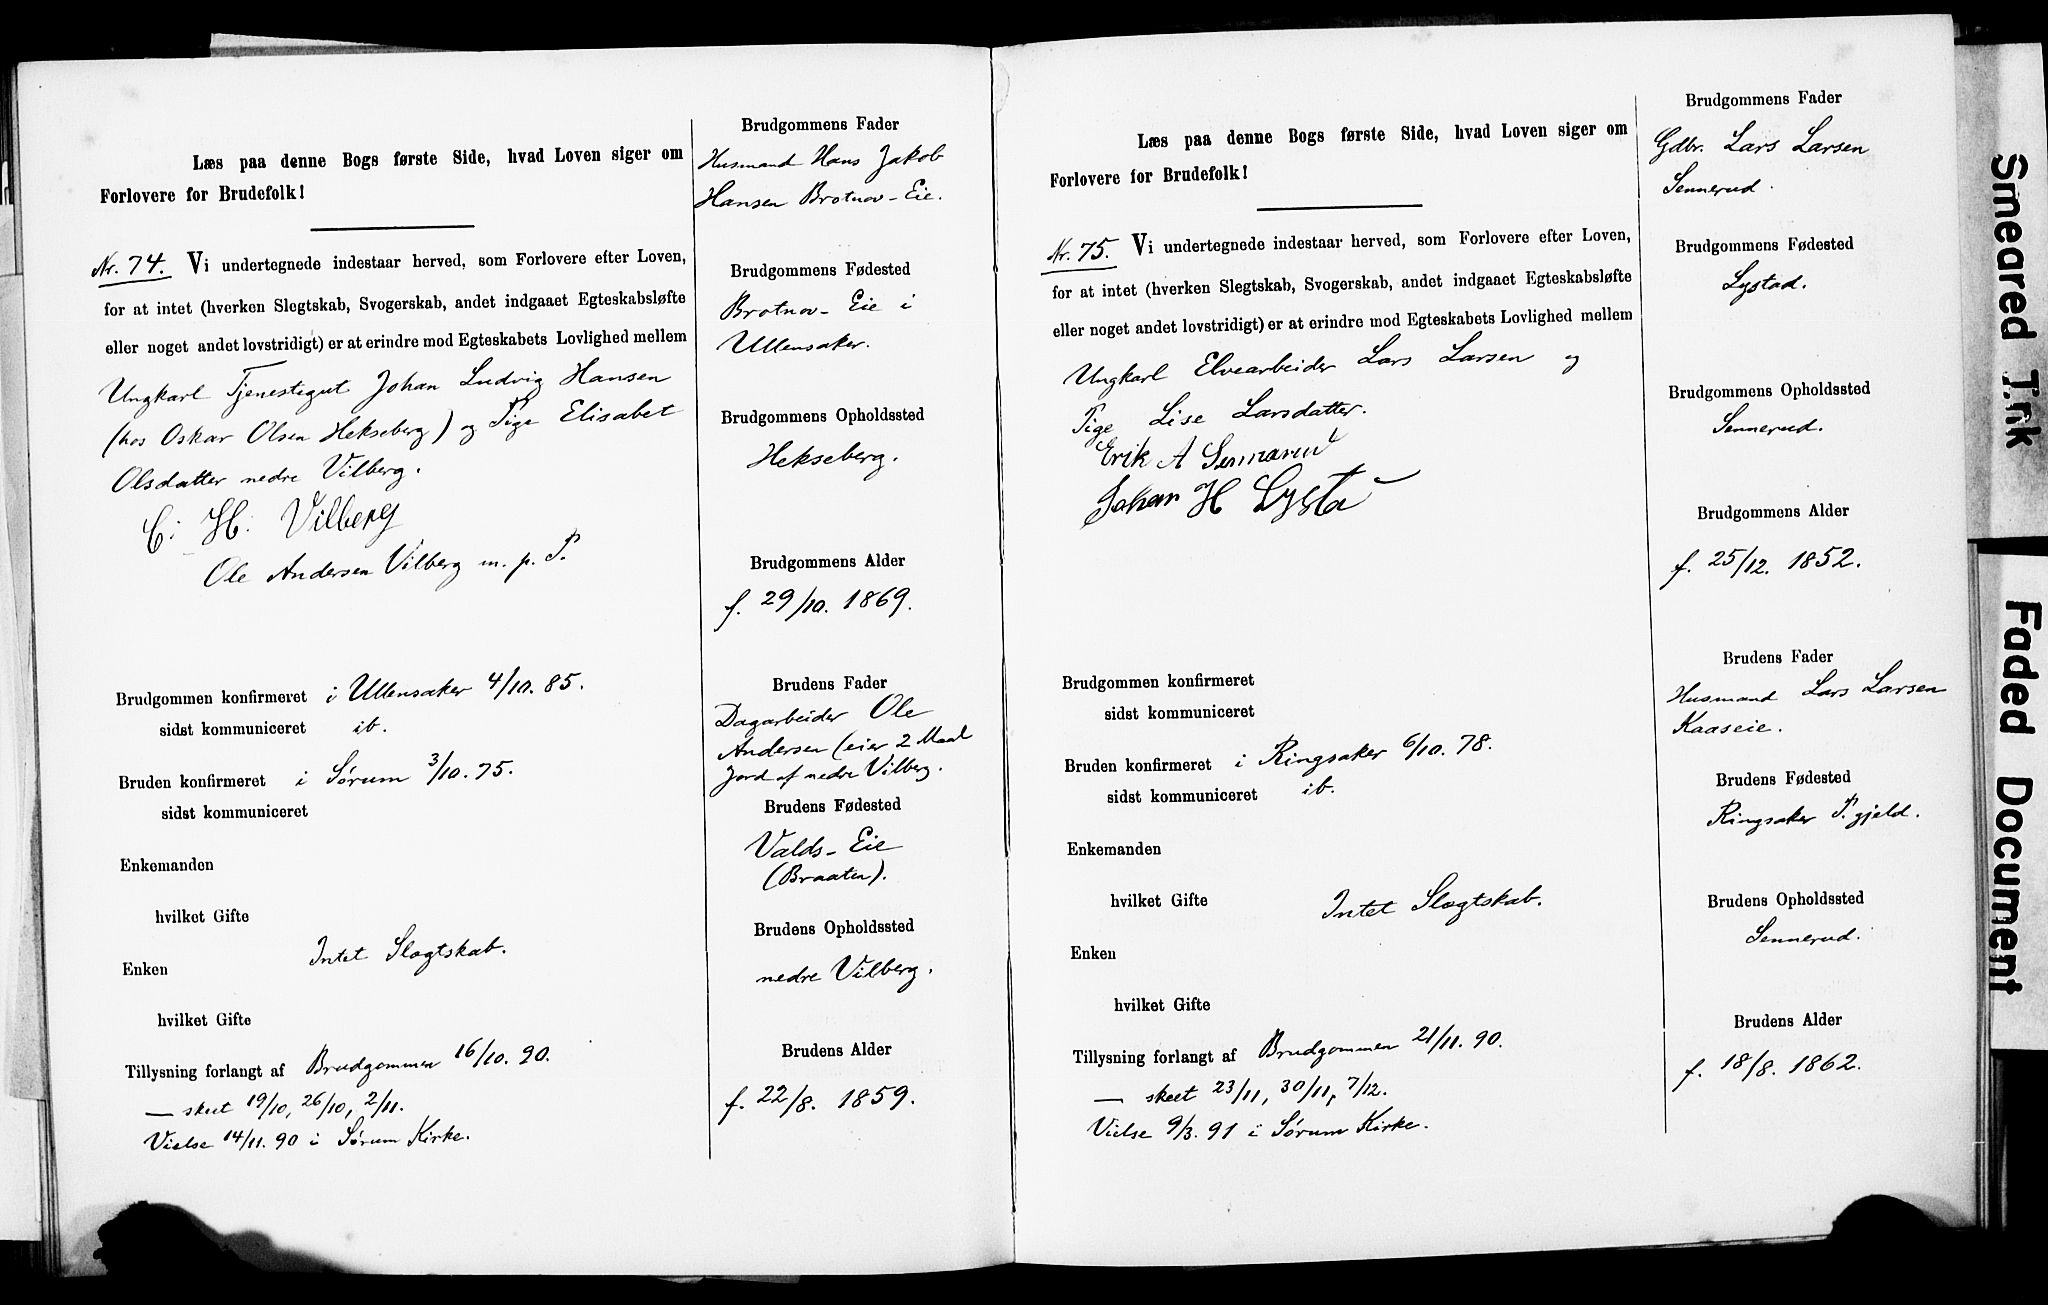 Læs paa denne Bogs første Side, hvad Loven siger om
Forlovere for Brudefolk!
Nr. 74. Vi undertegnede indestaar herved, som Forlovere efter Loven,
for at intet (hverken Slegtskab, Svogerskab, andet indgaaet Egteskabsløfte
eller noget andet lovstridigt) er at erindre mod Egteskabets Lovlighed mellem
Ungkarl Tjenestegut Johan Ludvig Hansen
(hos Oskar Olsen Hekseberg) og Pige Elisabet
Olsdatter nedre Vilberg.
C. H. Vilberg
Ole Andersen Vilberg m. p. P.
Brudgommen konfirmeret i Ullensaker 4/10. 85.
sidst kommuniceret ib.
Bruden konfirmeret i Sørum 3/10. 75.
sidst kommuniceret
Enkemanden
hvilket Gifte
Intet Slægtskab.
Enken
hvilket Gifte
Tillysning forlangt af Brudgommen 16/10. 90.
— skeet 19/10, 26/10, 2/11.
Vielse 14/11. 90 i Sørum Kirke.
Brudgommens Fader
Husmand Hans Jakob
Hansen Brotnov-Eie.
Brudgommens Fødested
Brotnov-Eie i
Ullensaker.
Brudgommens Opholdssted
Hekseberg.
Brudgommens Alder
f. 29/10. 1869.
Brudens Fader
Dagarbeider Ole
Andersen (eier 2 Maal
Jord af nedre Vilberg.
Brudens Fødested
Valds-Eie
(Braaten).
Brudens Opholdssted
nedre Vilberg.
Brudens Alder
f. 22/8. 1859.
Læs paa denne Bogs første Side, hvad Loven siger om
Forlovere for Brudefolk!
Nr. 75. Vi undertegnede indestaar herved, som Forlovere efter Loven,
for at intet (hverken Slegtskab, Svogerskab, andet indgaaet Egteskabsløfte
eller noget andet lovstridigt) er at erindre mod Egteskabets Lovlighed mellem
Ungkarl Elvearbeider Lars Larsen og
Pige Lise Larsdatter.
Erik A
Johan H Lysta
Brudgommen konfirmeret
sidst kommuniceret
Bruden konfirmeret i Ringsaker 6/10. 78.
sidst kommuniceret ib.
Enkemanden
hvilket Gifte
Intet Slægtskab.
Enken
hvilket Gifte
Tillysning forlangt af Brudgommen 21/11. 90.
— skeet 23/11, 30/11, 7/12.
Vielse 9/3. 91 i Sørum Kirke.
Brudgommens Fader
Gdbr. Lars Larsen
Sennerud.
Brudgommens Fødested
Lystad.
Brudgommens Opholdssted
Sennerud.
Brudgommens Alder
f. 25/12. 1852.
Brudens Fader
Husmand Lars Larsen
Kaaseie.
Brudens Fødested
Ringsaker P.gjeld.
Brudens Opholdssted
Sennerud.
Brudens Alder
f. 18/8. 1862.
Smeared Ink
Faded Document